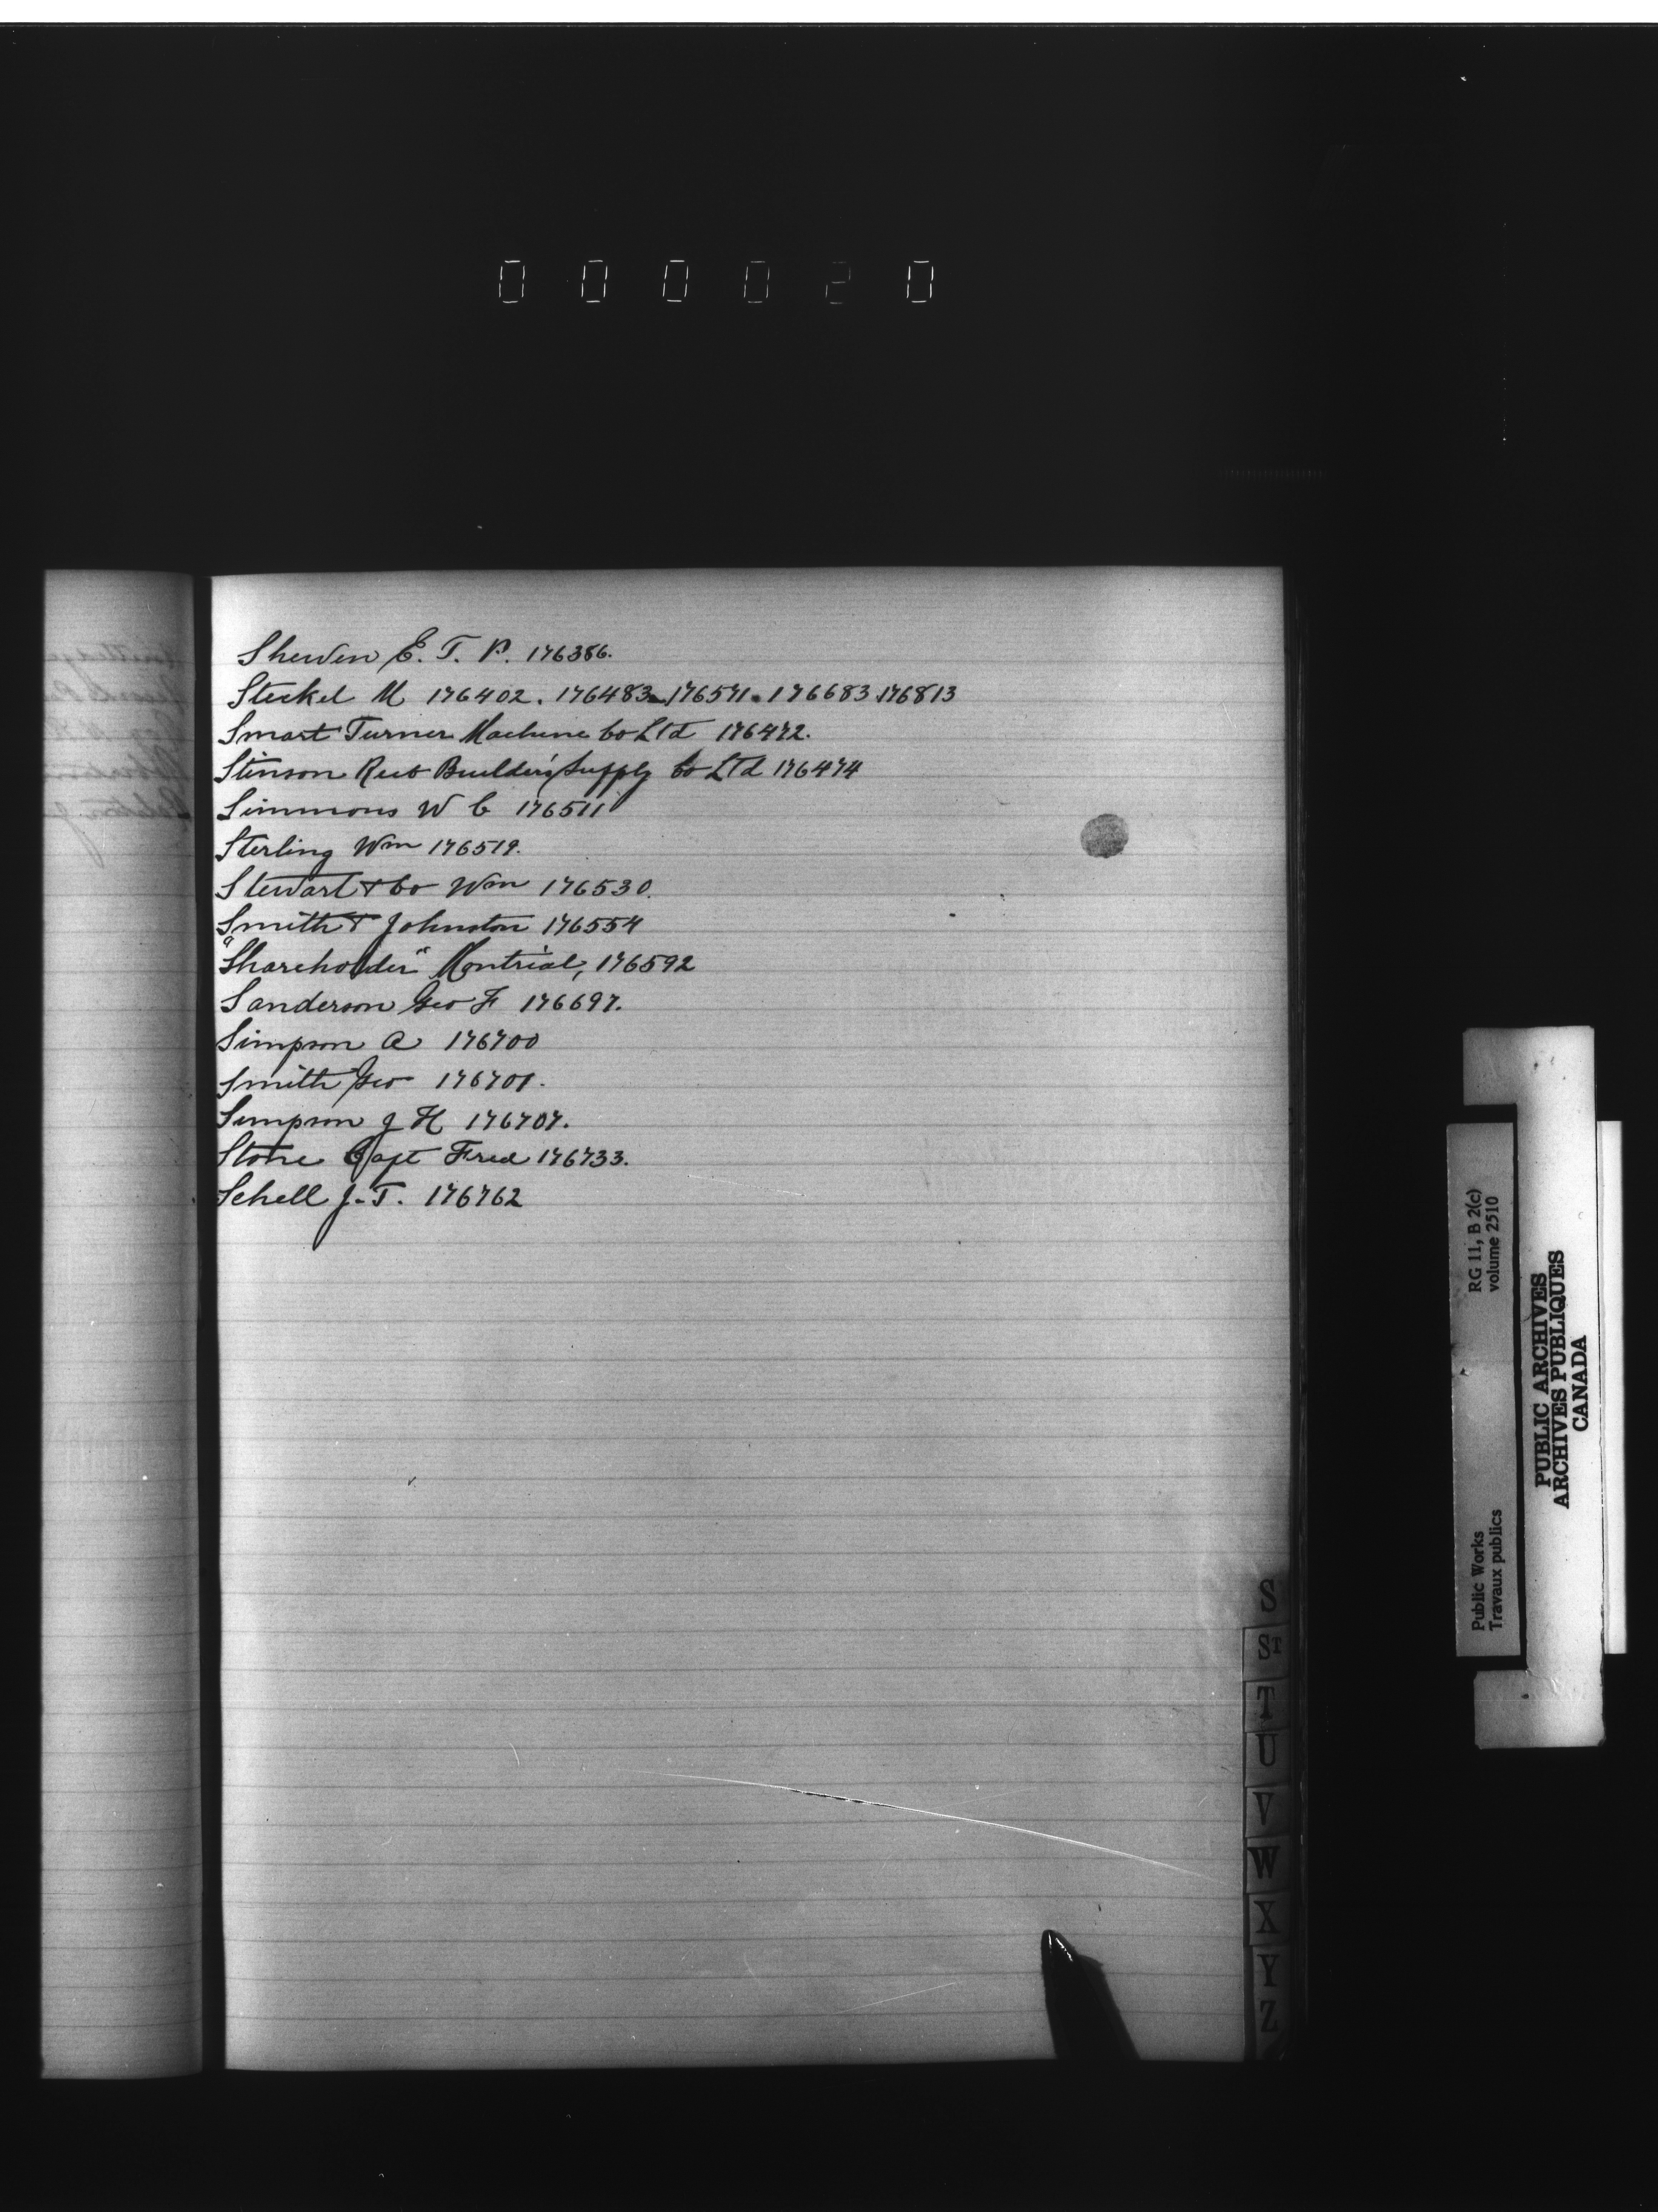 000020
Shewen E. T. P. 176386.
Steckel M 176402. 176483. 176571. 176683 176813
Smart Turner Machine Co Ltd 176472.
Stinson Reeb Builders Supply Co Ltd 176474
Simmons W C 176511
Sterling Wm 176519.
Stewart & Co Wm 176530.
Smith & Johnston 176554
"Shareholder" Montreal, 176592
Sanderson Geo F 176697.
Simpson A 176700
Smith Geo 176701.
Simpson J H 176707.
Stone Capt Fred 176733.
Schell J. T. 176762
S
ST
T
U
V
W
X
Y
Z
Public Works
Travaux publics
RG 11, B 2(c)
volume 2510
PUBLIC ARCHIVES
ARCHIVES PUBLIQUES
CANADA